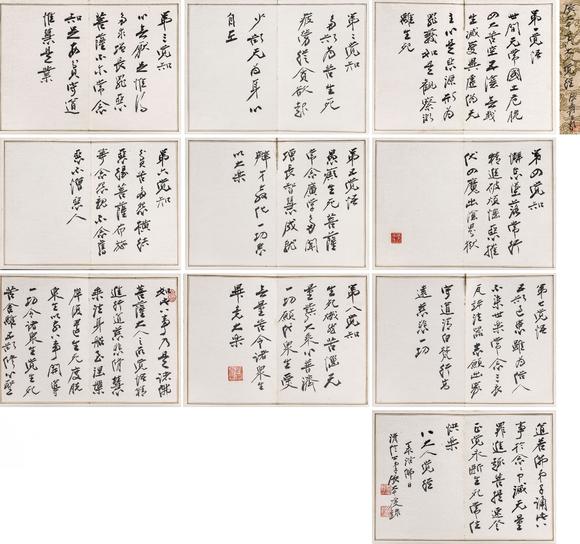 第一覺悟
世間無常國土危脆
四大苦空五陰無我
生滅變異虛偽無
主心是惡源形為
罪藪如是觀察漸
離生死
第二覺知
多欲為苦生死
疲勞從貪欲起
少欲無為身心
自在
第三覺知
心無厭足惟得
多求增長罪惡
菩薩不爾常念
知足安貧守道
惟慧是業
第四覺知
懈怠墜落常行
精進破煩惱惡摧
伏四魔出陰界獄
第五覺悟
愚癡生死菩薩
常念廣學多聞
增長智慧成就
辯才教化一切悉
以大樂
第六覺知
貧苦多怨橫結
惡緣菩薩布施
等念怨親不念舊
惡不憎惡人
第七覺悟
五欲過患雖為俗人
不染世樂常念三衣
瓦鉢法器志願出家
守道清白梵行高
遠慈悲一切
第八覺知
生死熾然苦惱無
量發大乘心普濟
一切願代眾生受
無量苦令諸眾生
畢竟大樂
如此八事乃是諸佛
菩薩大人之所覺悟精
進行道慈悲修慧
乘法身船至涅槃
岸復還生死度脫
眾生以前八事開導
一切令諸眾生覺生死
苦舍離五欲修心聖
道若佛弟子誦此八
事於念念中滅無量
罪進趣菩提速登
正覺永斷生死常住
快樂
八大人覺經
浴佛日